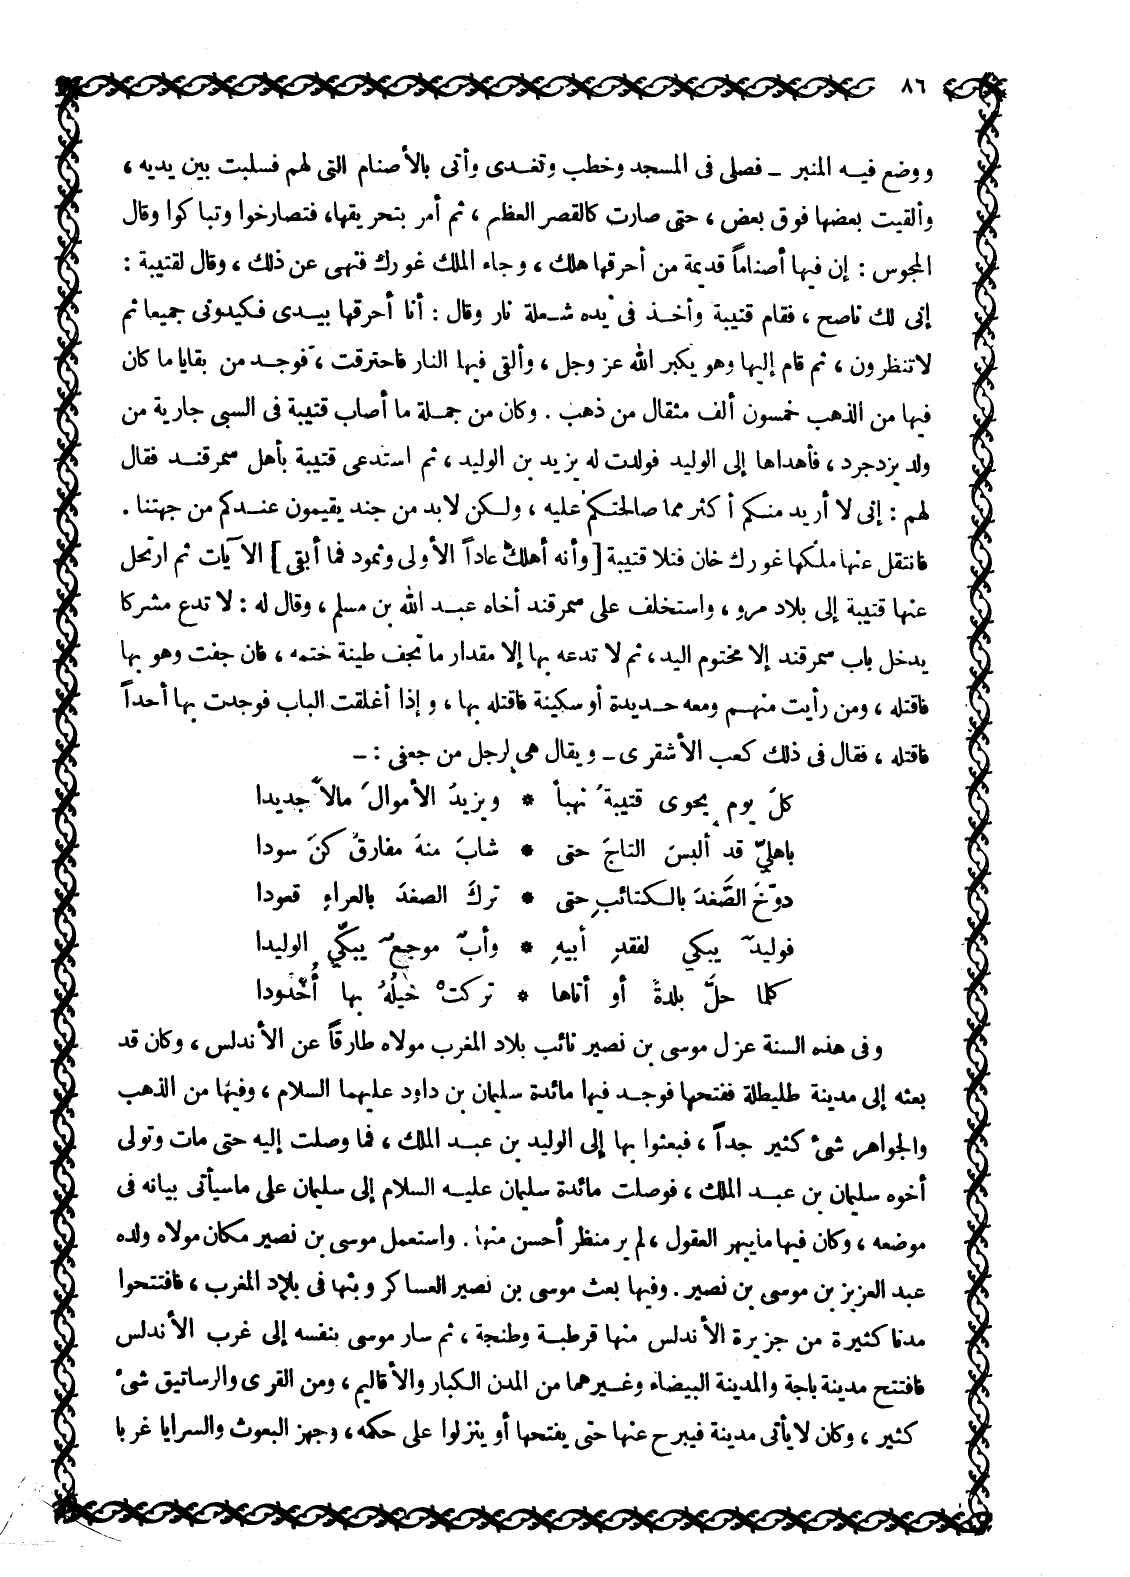 ٨٦
ووضع فيه المنبر ـ فصلى فى المسجد وخطب وتغدى وأتى بالأصنام التى لهم فسلبت بين يديه ،
وألقيت بعضها فوق بعض ، حتى صارت كالقصر العظيم ، ثم أمر بتحريقها، فتصارخوا وتباكوا وقال
المجوس : إن فيها أصناماً قديمة من أحرقها هلك ، وجاء الملك غورك فنهى عن ذلك ، وقال لقتيبة :
إنى لك ناصح ، فقام قتيبة وأخذ فى يده شعلة نار وقال : أنا أحرقها بيدى فكيدونى جميعا ثم
لاتنظرون ، ثم قام إليها وهو يكبر الله عز وجل ، وألقى فيها النار فاحترقت ، فوجد من بقايا ما كان
فيها من الذهب خمسون ألف مثقال من ذهب . وكان من جملة ما أصاب قتيبة فى السبى جارية من
ولد يزدجرد ، فأهداها إلى الوليد فولدت له يزيد بن الوليد ، ثم استدعى قتيبة بأهل سمرقند فقال
لهم : إنى لا أريد منكم أكثر مما صالحتكم عليه ، ولكن لابد من جند يقيمون عندكم من جهتنا .
فانتقل عنها ملكها غورك خان فتلا قتيبة [ وأنه أهلك عاداً الأولى وثمود فما أبقى ] الآيات ثم ارتحل
عنها قتيبة إلى بلاد مرو ، واستخلف على سمرقند أخاه عبد الله بن مسلم ، وقال له : لا تدع مشركا
يدخل باب سمرقند إلا مختوم اليد ، ثم لا تدعه بها إلا مقدار ما تجف طينة ختمه ، فان جفت وهو بها
فاقتله ، ومن رأيت منهم ومعه حديدة أو سكينة فاقتله بها ، وإذا أغلقت الباب فوجدت بها أحداً
فاقتله ، فقال فى ذلك كعب الأشقرى ـ ويقال هى لرجل من جعفى : ـ
كلَ يوم يحوى قتيبةُ نهباً * ويزيدُ الأموالَ مالاً جديدا
باهليّ قد ألبسَ التاجَ حتى * شابَ منهُ مفارقُ كنَ سودا
دوّخَ الصُّغدَ بالكتائبِ حتى * تركَ الصغدَ بالعراءِ قعودا
فوليدٌ يبكي لفقدِ أبيهِ * وأبٌ موجعٌ يبكّي الوليدا
كلما حلَّ بلدةً أو أتاها * تركتْ خيلُهُ بها أُخدودا
وفى هذه السنة عزل موسى بن نصير نائب بلاد المغرب مولاه طارقاً عن الأندلس ، وكان قد
بعثه إلى مدينة طليطلة ففتحها فوجد فيها مائدة سليمان بن داود عليهما السلام ، وفيها من الذهب
والجواهر شىء كثير جداً ، فبعثوا بها إلى الوليد بن عبد الملك ، فما وصلت إليه حتى مات وتولى
أخوه سليمان بن عبد الملك ، فوصلت مائدة سليمان عليه السلام إلى سليمان على ماسيأتى بيانه فى
موضعه ، وكان فيها مايبهر العقول ، لم ير منظر أحسن منها . واستعمل موسى بن نصير مكان مولاه ولده
عبد العزيز بن موسى بن نصير . وفيها بعث موسى بن نصير العساكر وبثها فى بلاد المغرب ، فافتتحوا
مدنا كثيرة من جزيرة الأندلس منها قرطبة وطنجة ، ثم سار موسى بنفسه إلى غرب الأندلس
فافتتح مدينة باجة والمدينة البيضاء وغيرهما من المدن الكبار والأقاليم ، ومن القرى والرساتيق شىء
كثير ، وكان لايأتى مدينة فيبرح عنها حتى يفتحها أو ينزلوا على حكمه ، وجهز البعوث والسرايا غربا